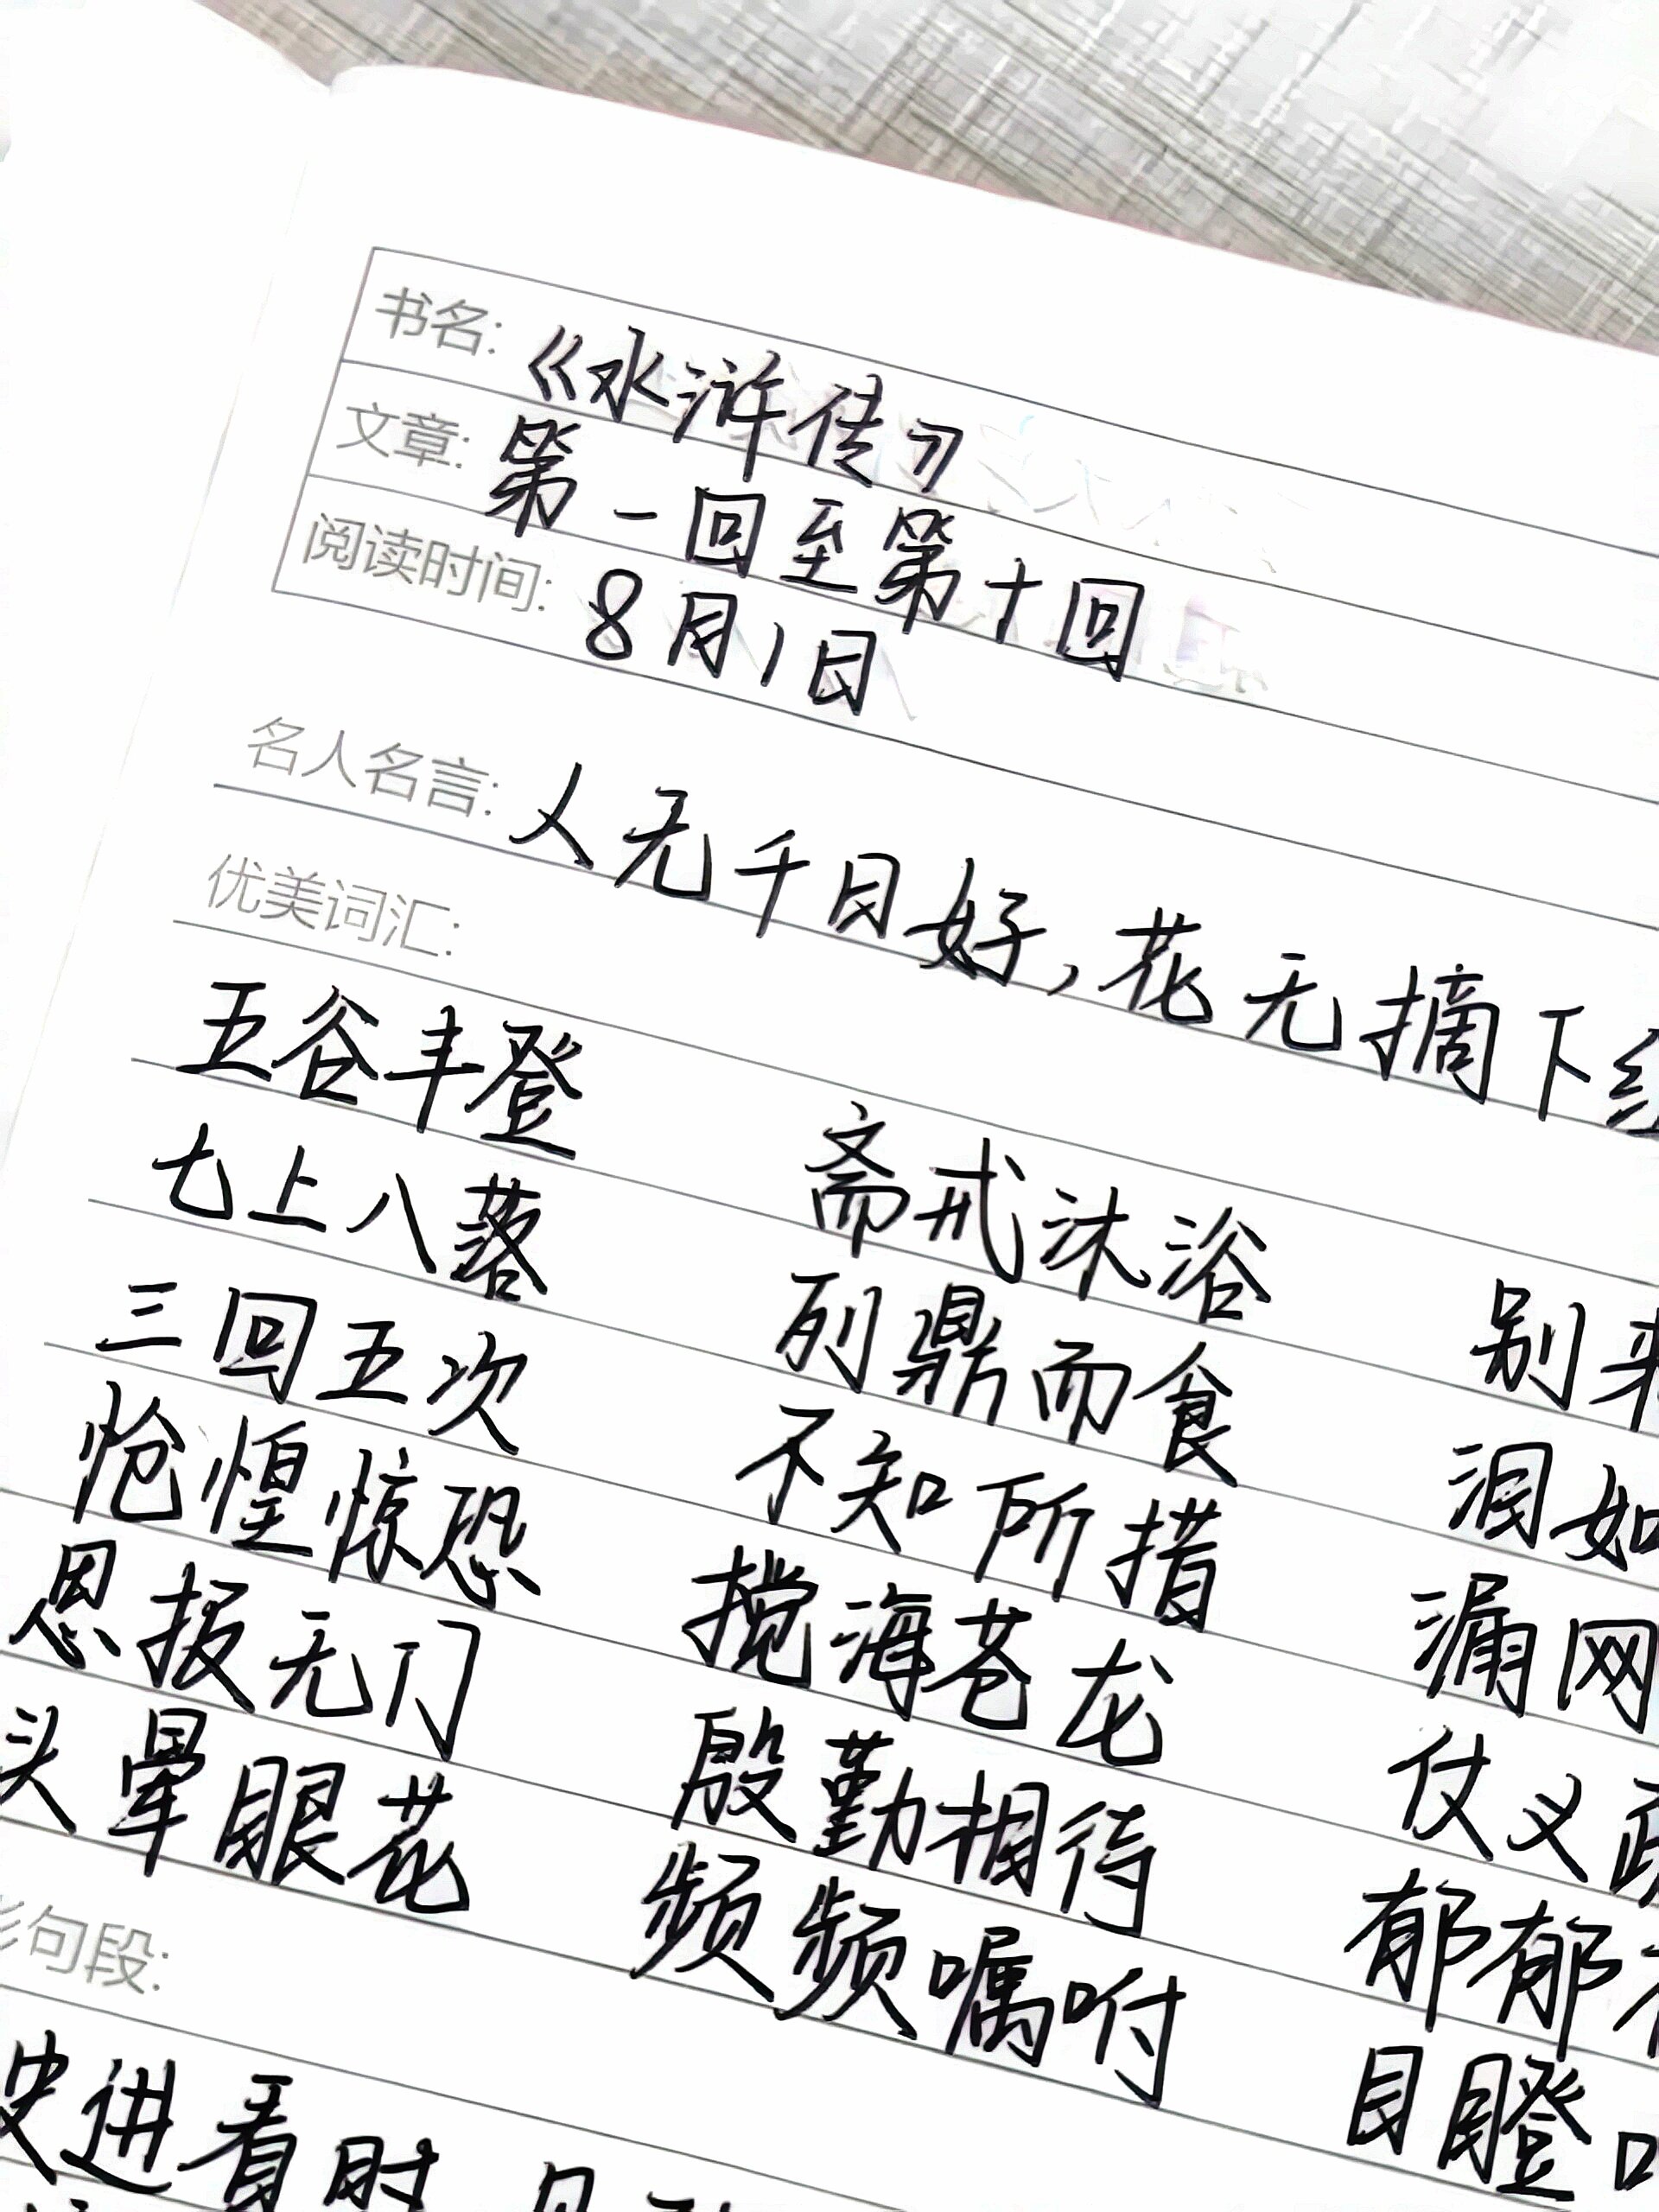 书名: 《水浒传》
文章: 第一回至第十回
阅读时间: 8月1日
名人名言: 人无千日好,花无摘下红
优美词汇:
五谷丰登 斋戒沐浴 别来
七上八落 列鼎而食 泪如
三回五次 不知所措 漏网
怆惶惊恐 搅海苍龙 仗义疏
恩报无门 殷勤相待 郁郁
头晕眼花 频频嘱咐 目瞪口
句段:
史进看时